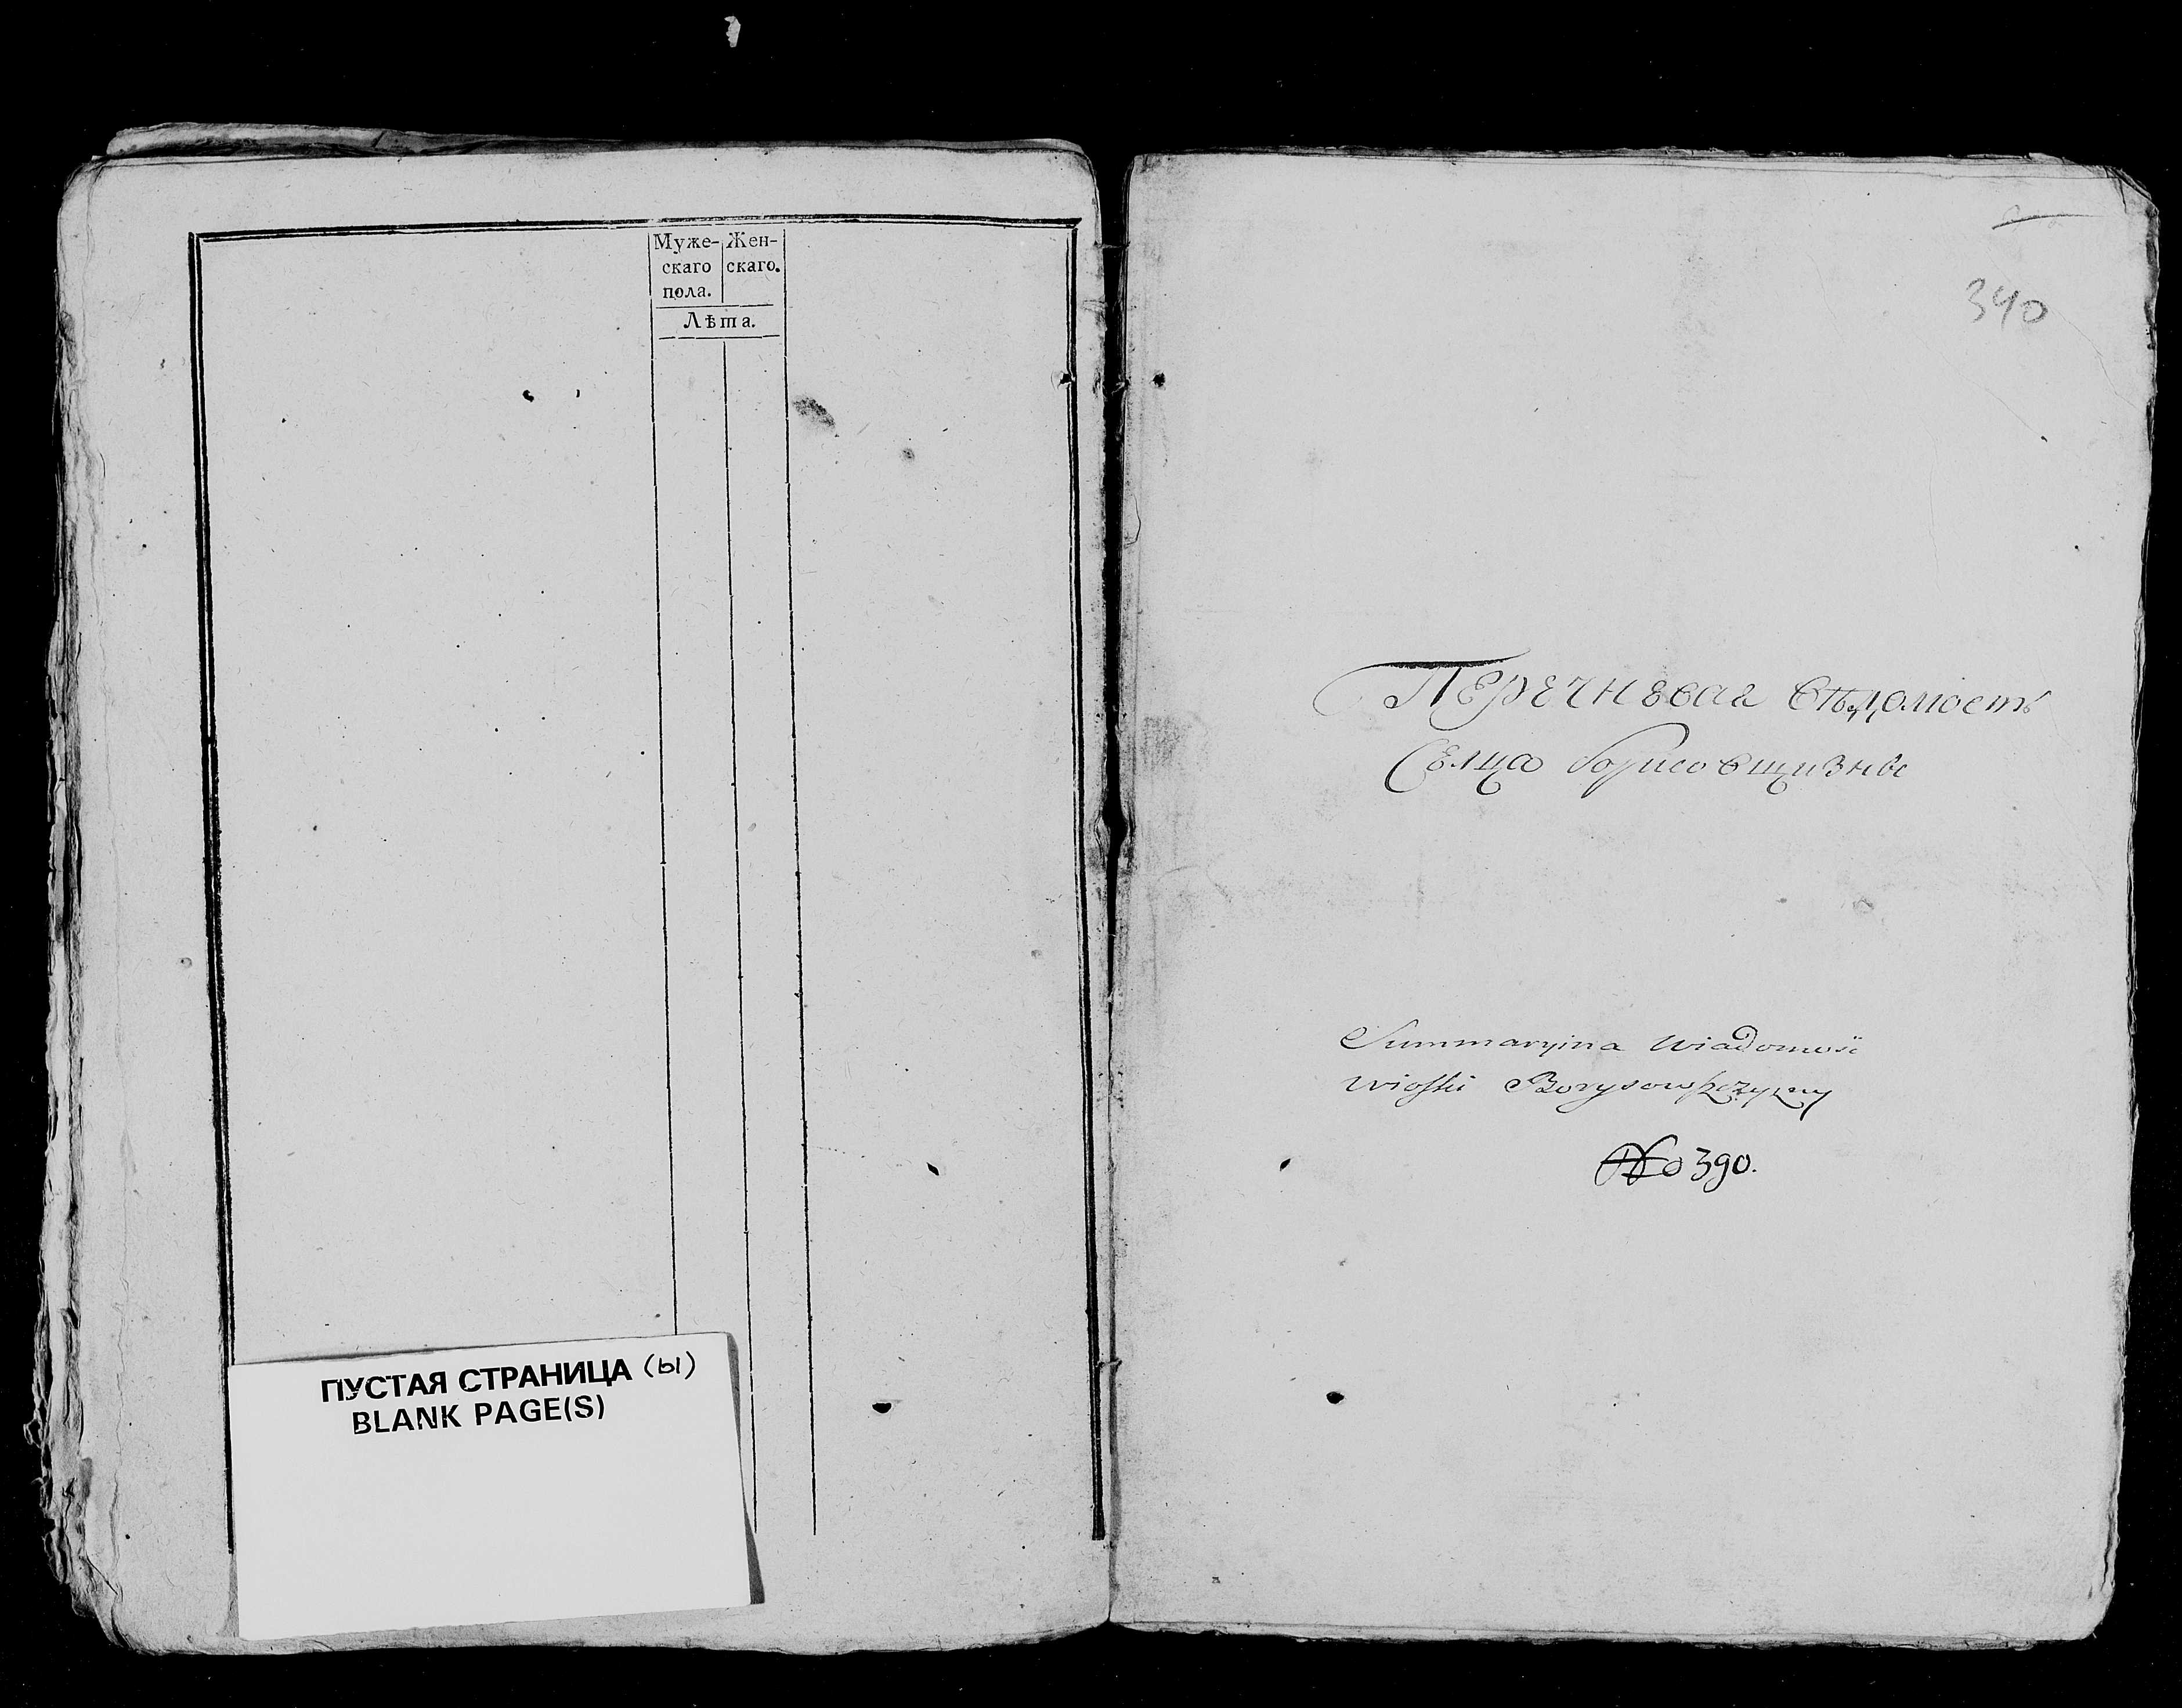 Муже- Жен-
скаго скаго.
пола.
Лѣта.
ПУСТАЯ СТРАНИЦА (ы)
BLANK PAGE(S)
340
Перечневая вѣдомость
Селца Борисовщизны
Summaryina Wiadomość
wioski Borysowszczyzny
No 390.